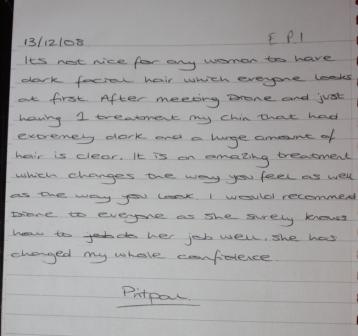 13/12/08 EPI
Its not nice for any woman to have
dark facial hair which everyone looks
at first. After meeting Diane and just
having 1 treatment my chin that had
extremely dark and a huge amount of
hair is clear. It is an amazing treatment
which changes the way you feel as well
as the way you look. I would recommend
Diane to everyone as she surely knows
how to job do her job well. She has
changed my whole confidence
Pritpal